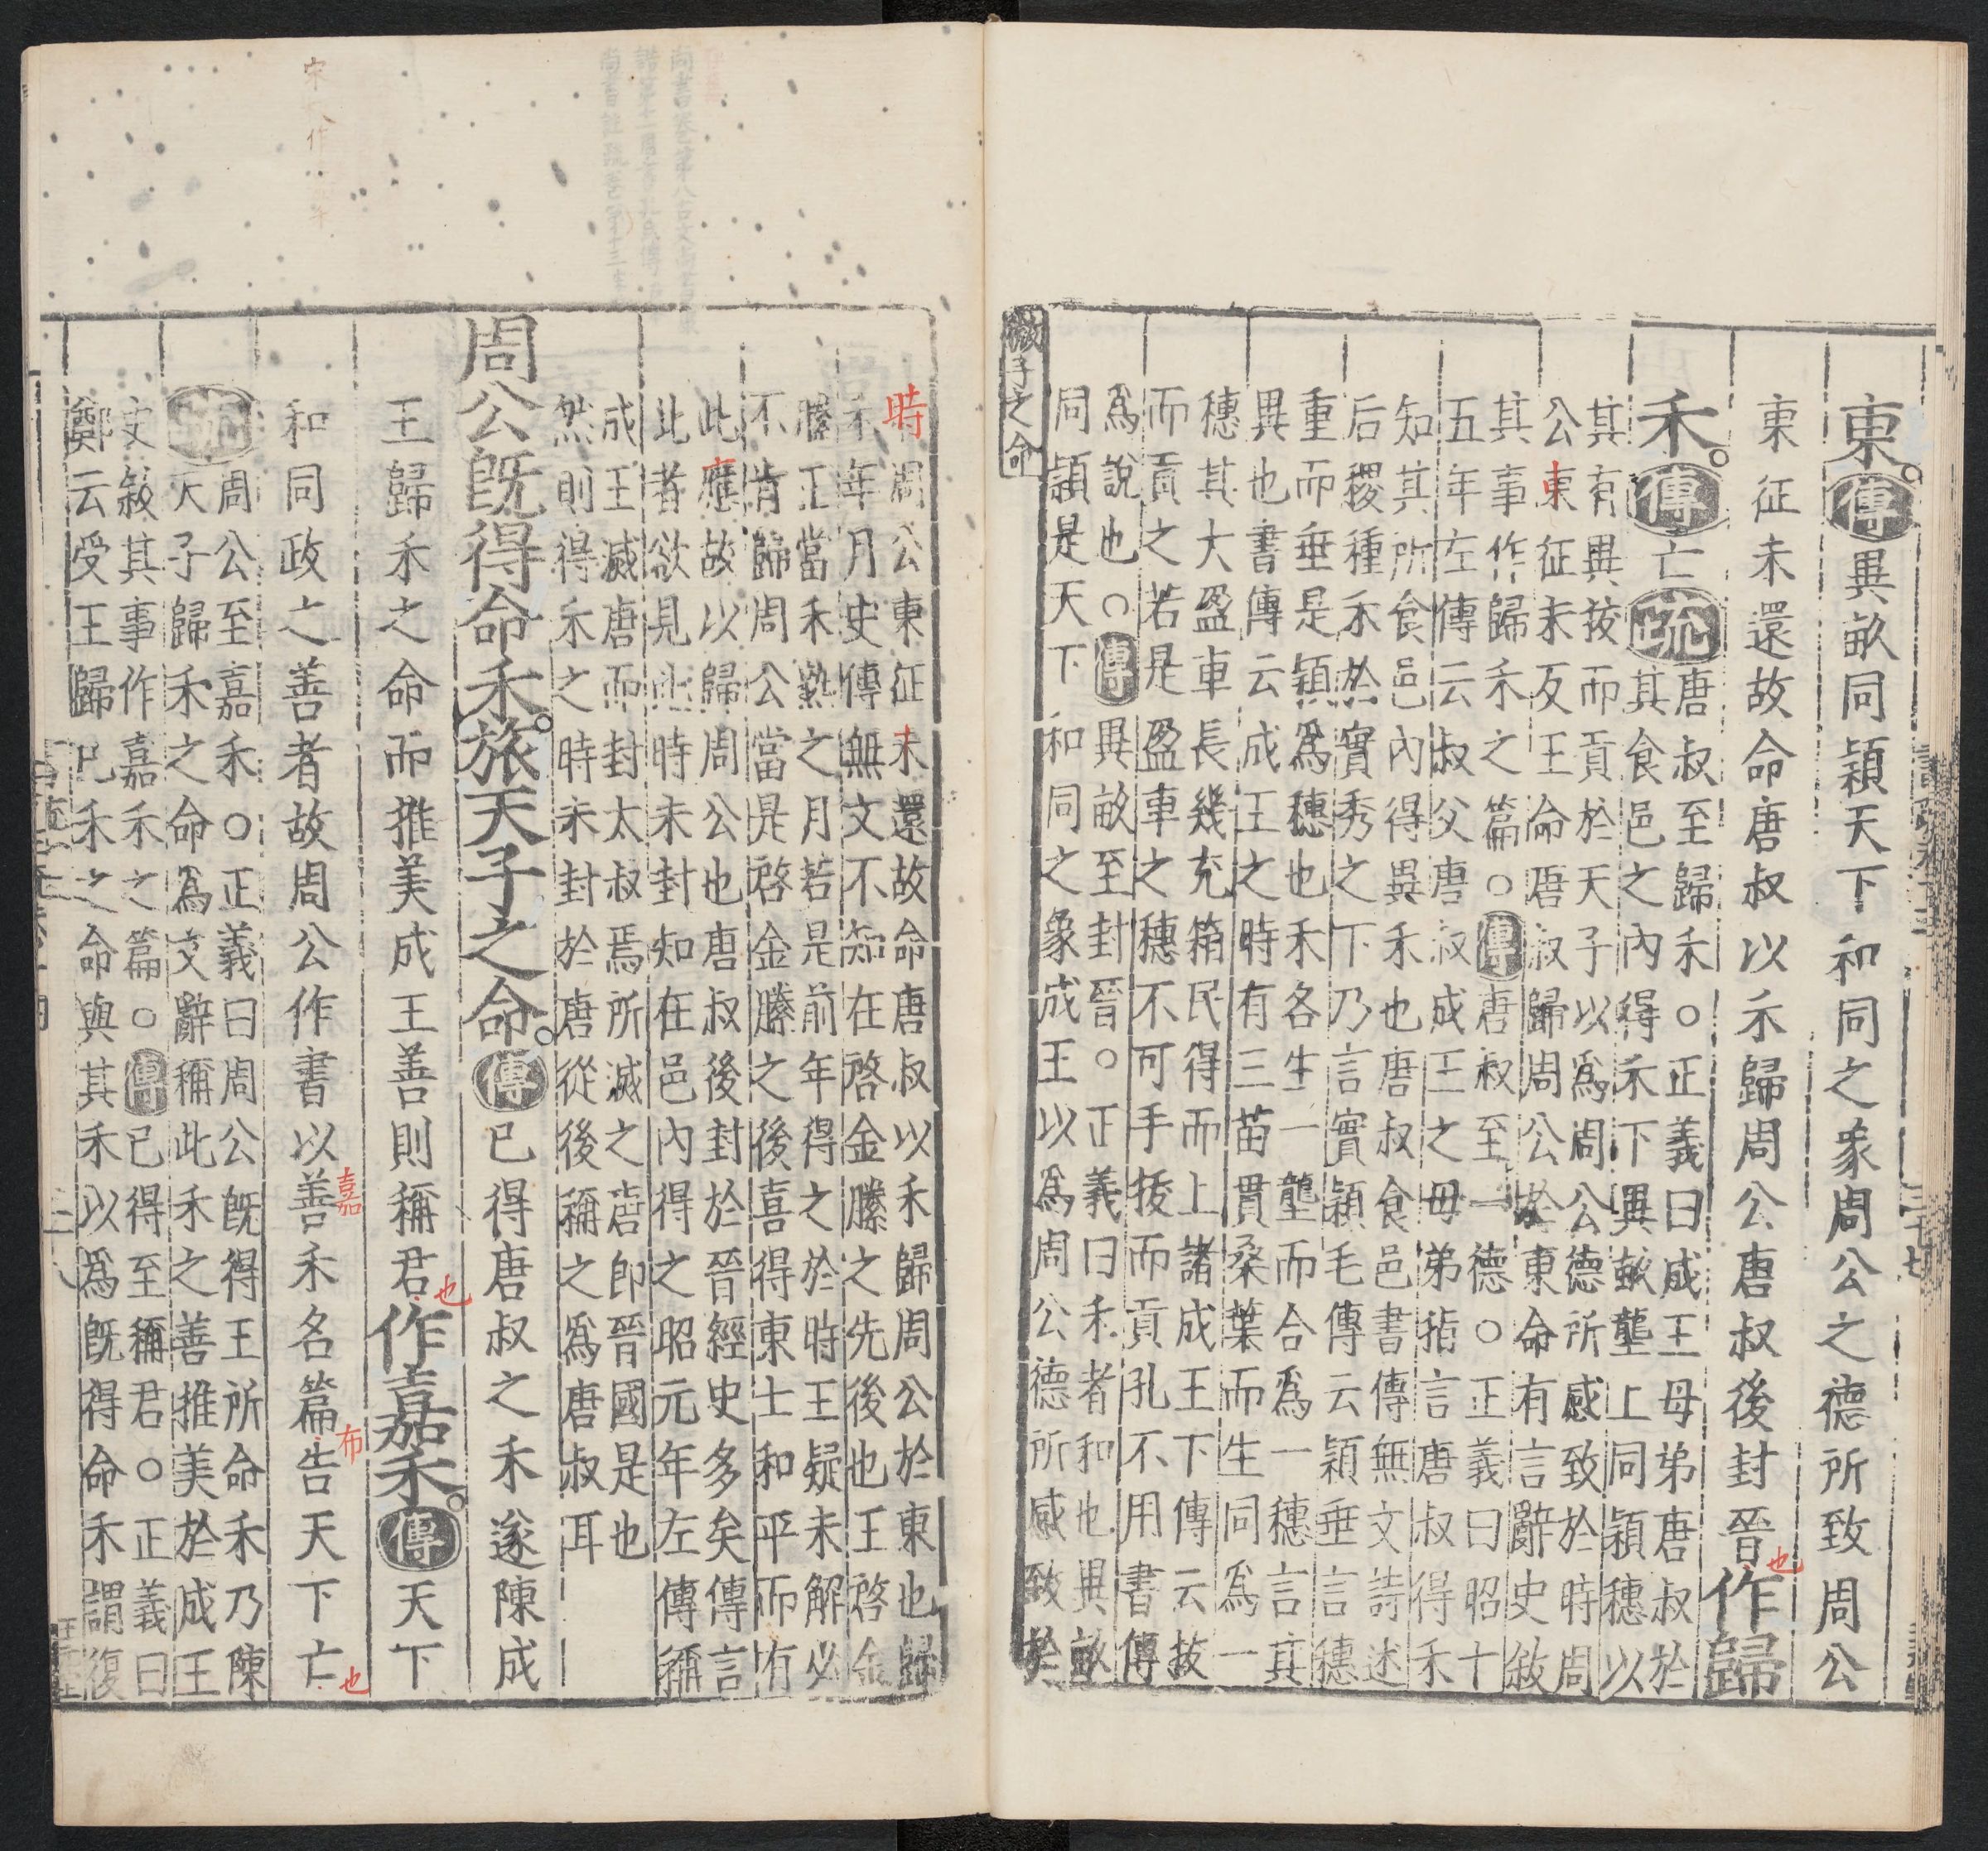 東。傳異畝同穎天下和同之象周公之德所致周公
東征未還故命唐叔以禾歸周公唐叔後封晉也作歸
禾。傳亡疏唐叔至歸禾○正義曰成王母弟唐叔於
其食邑之內得禾下異畝壟上同穎穗以
其有異拔而貢於天子以爲周公德所感致於時周
公東征未反王命唐叔歸周公於東命有言辭史敘
其事作歸禾之篇○傳唐叔至一德○正義曰昭十
五年左傳云叔父唐叔成王之母弟指言唐叔得禾
知其所食邑內得異禾也唐叔食邑書傳無文詩述
后稷種禾於實秀之下乃言實穎毛傳云穎垂言穗
重而垂是穎爲穗也禾各生一壟而合爲一穗言其
異也書傳云成王之時有三苗貫桑葉而生同爲一
穗其大盈車長幾充箱民得而上諸成王下傳云拔
而貢之若是盈車之穗不可手拔而貢孔不用書傳
爲說也○傳異畝至封晉○正義曰禾者和也異畝
同穎是天下和同之象成王以爲周公德所感致於
微子之命
時周公東征未還故命唐叔以禾歸周公於東也歸
禾年月史傳無文不知在啓金縢之先後也王啓金
縢正當禾熟之月若是前年得之於時王疑未解必
不肯歸周公當是啓金縢之後喜得東土和平而有
此應故以歸周公也唐叔後封於晉經史多矣傳言
此者欲見此時未封知在邑內得之昭元年左傳稱
成王滅唐而封太叔焉所滅之唐即晉國是也
然則得禾之時未封於唐從後稱之爲唐叔耳
周公旣得命禾。旅天子之命。傳已得唐叔之禾遂陳成
王歸禾之命而推美成王善則稱君也作嘉禾。傳天下
和同政之善者故周公作書以善嘉禾名篇告布天下亡也
疏周公至嘉禾○正義曰周公旣得王所命禾乃陳
天子歸禾之命爲文辭稱此禾之善推美於成王
史敘其事作嘉禾之篇○傳已得至稱君○正義曰
鄭云受王歸已禾之命與其禾以爲旣得命禾謂復